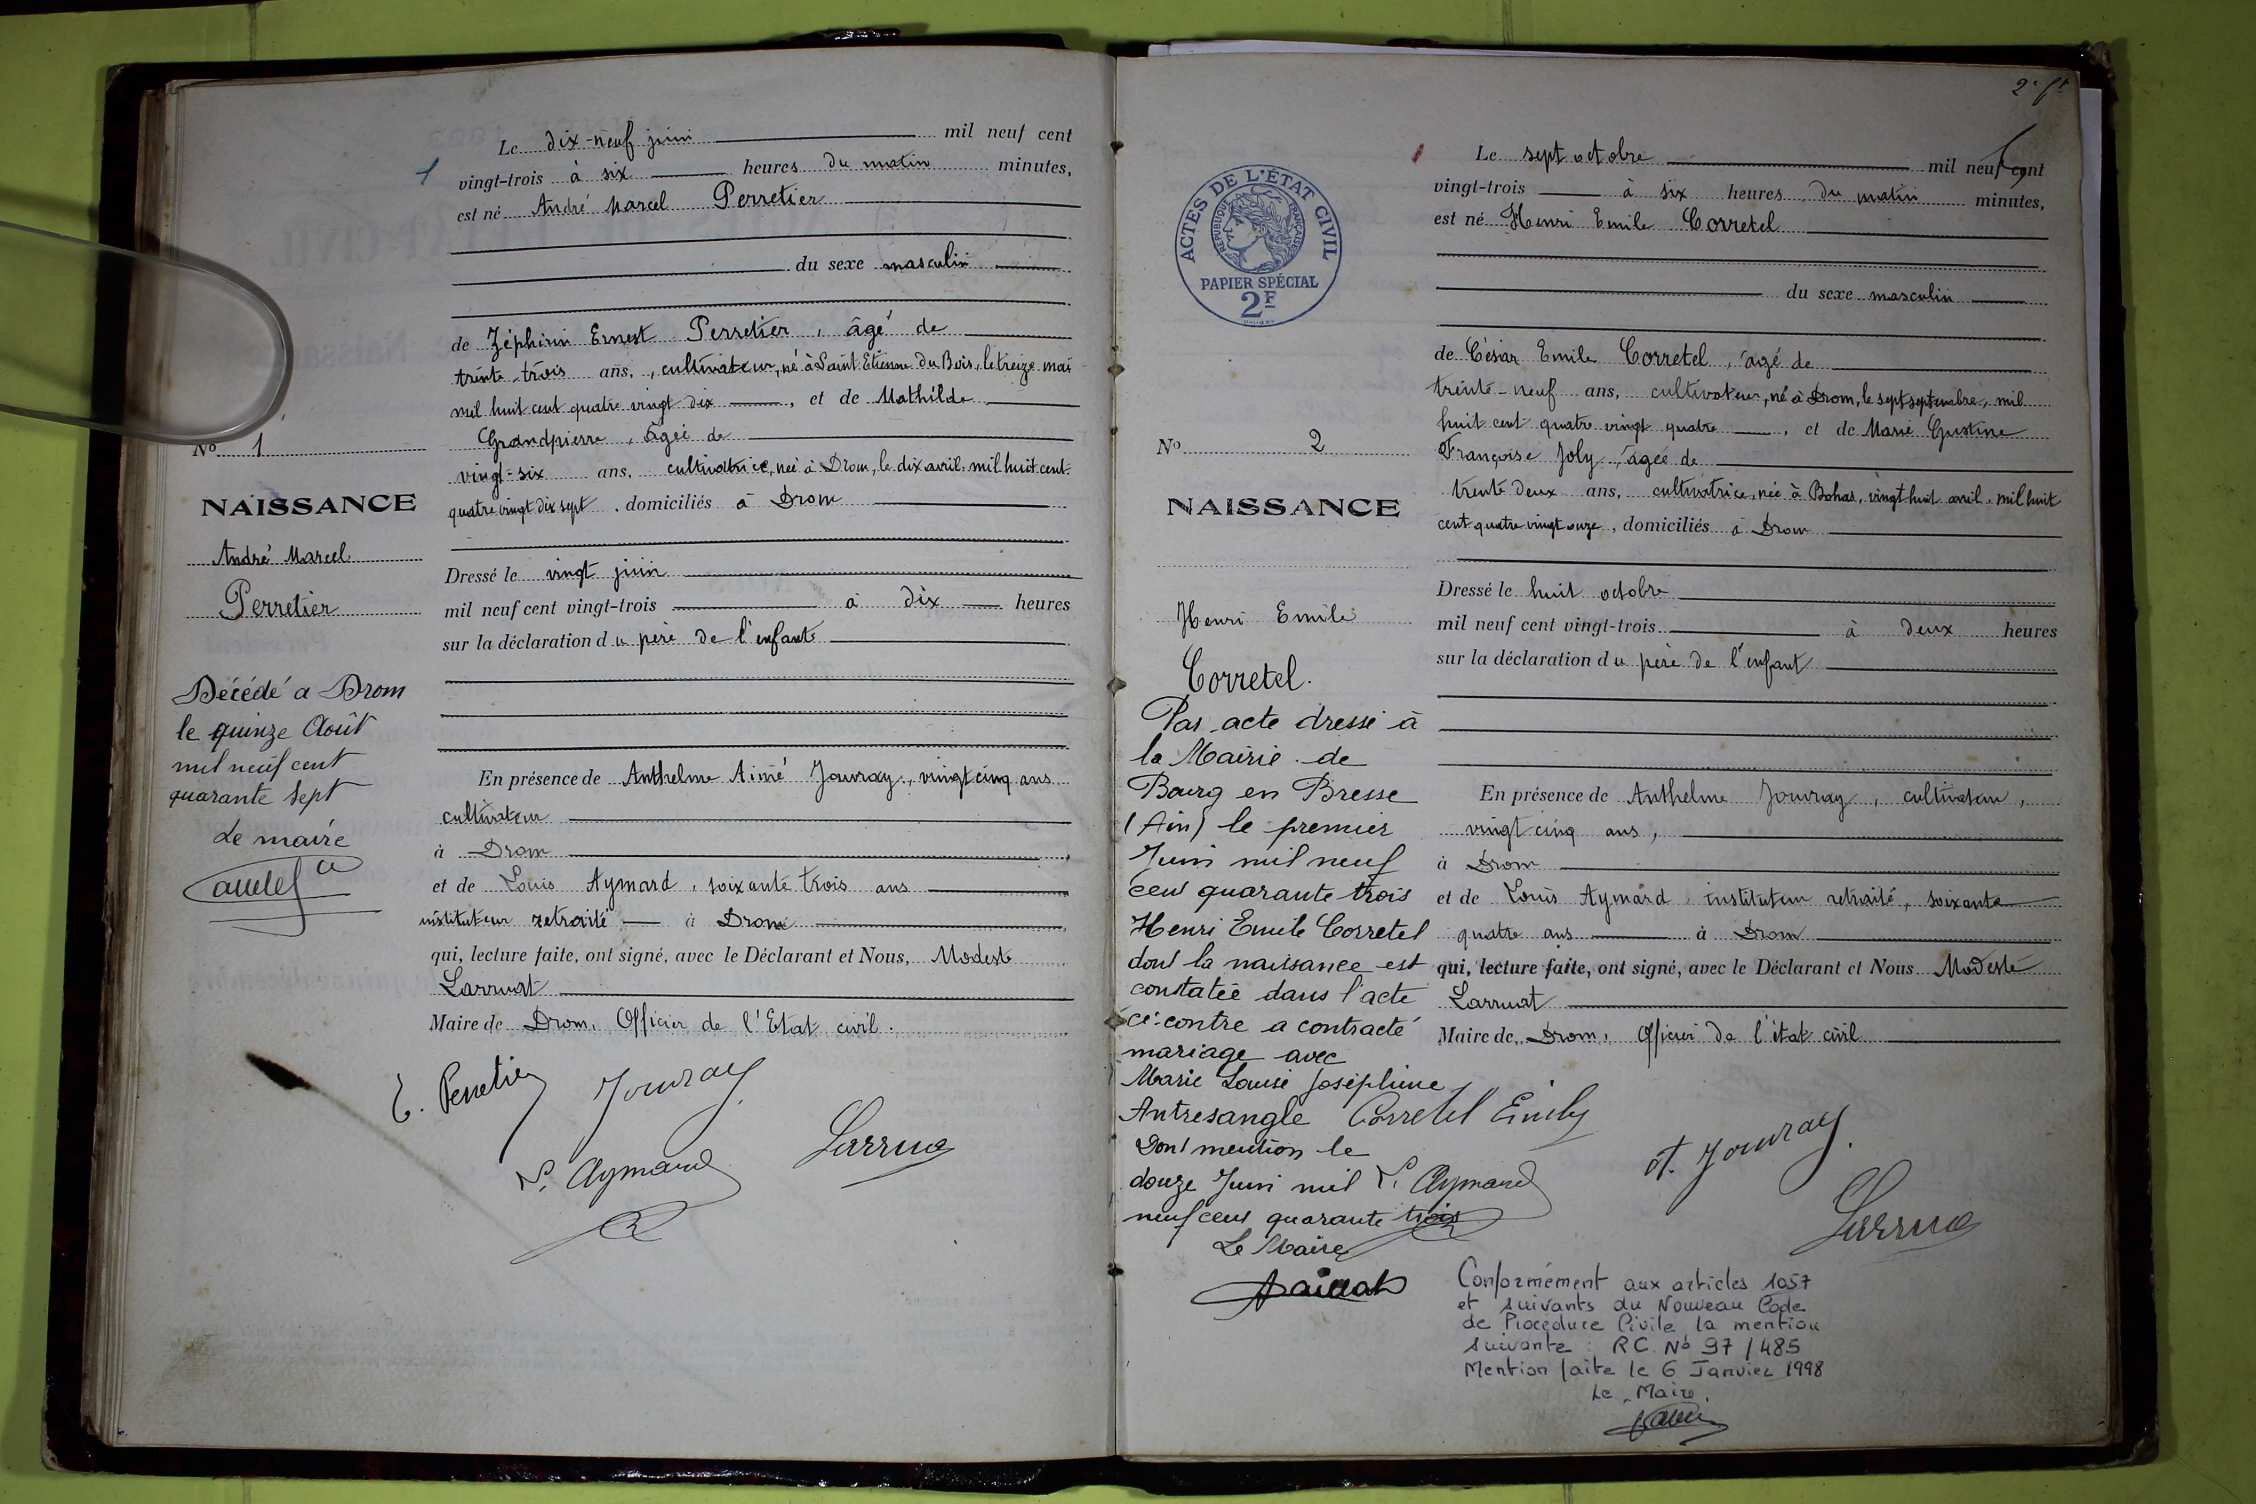 Le dix-neuf juin mil neuf cent
vingt-trois à six heures du matin minutes,
est né André Marcel Perretier
du sexe masculin
de Zéphirin Ernest Perretier, âgé de
trente-trois ans, cultivateur, né à Saint Etienne du Bois, le treize mai
mil huit cent quatre vingt dix, et de Mathilde
Grandpierre, âgée de
vingt-six ans, cultivatrice, née à Drom, le dix avril mil huit cent
quatre vingt dix sept, domiciliés à Drom
Dressé le vingt juin
mil neuf cent vingt-trois à dix heures
sur la déclaration du père de l'enfant
En présence de Anthelme Aimé Jouvray, vingt cinq ans
cultivateur
à Drom
et de Louis Aymard, soixante trois ans
instituteur retraité à Drom
qui, lecture faite, ont signé, avec le Déclarant et Nous, Modeste
Larruat
Maire de Drom, Officier de l'Etat civil.
E. Perretier Jouvray
L. Aymard Larrua
1
No 1
NAISSANCE
André Marcel
Perretier
Décédé a Drom
le quinze Août
mil neuf cent
quarante sept
Le maire
2e ft
1
Le sept octobre mil neuf cent
vingt-trois à six heures du matin minutes,
est né Henri Emile Corretel
du sexe masculin
de César Emile Corretel, âgé de
trente-neuf ans, cultivateur, né à Drom, le sept septembre, mil
huit cent quatre vingt quatre, et de Marie Gustine
Françoise Joly, âgée de
trente deux ans, cultivatrice, née à Bohas, vingt huit avril mil huit
cent quatre vingt onze, domiciliés à Drom
Dressé le huit octobre
mil neuf cent vingt-trois à deux heures
sur la déclaration du père de l'enfant
En présence de Anthelme Jouvray, cultivateur,
vingt cinq ans,
à Drom
et de Louis Aymard instituteur retraité, soixante
quatre ans à Drom
qui, lecture faite, ont signé, avec le Déclarant et Nous Modeste
Larruat
Maire de Drom, Officier de l'état civil
Corretel Emile
A. Jouvray
L. Aymard
Larrua
ACTES DE L'ÉTAT CIVIL
RÉPUBLIQUE FRANÇAISE
PAPIER SPÉCIAL
2F
No 2
NAISSANCE
Henri Emile
Corretel.
Par acte dressé à
la Mairie de
Bourg en Bresse
(Ain) le premier
Juin mil neuf
cent quarante trois
Henri Emile Corretel
dont la naissance est
constatée dans l'acte
ci-contre a contracté
mariage avec
Marie Louise Joséphine
Antresangle
Dont mention le
douze Juin mil
neuf cent quarante trois
Le Maire
Conformément aux articles 1057
et suivants du Nouveau Code
de Procédure Civile la mention
suivante : RC. No 97/485
Mention faite le 6 Janvier 1998
Le Maire,